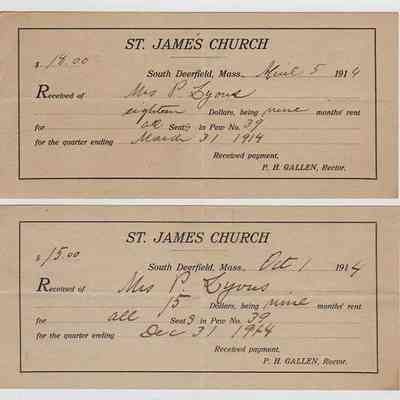 ST. JAMES CHURCH
$ 18.00
South Deerfield, Mass., April 5 1914
Received of Mrs P. Lyons
eighteen Dollars, being nine months' rent
for all Seats in Pew No. 39
for the quarter ending March 31 1914
Received payment,
P. H. GALLEN, Rector.
ST. JAMES CHURCH
$ 15.00
South Deerfield, Mass., Oct 1 1914
Received of Mrs P. Lyons
15 Dollars, being nine months' rent
for all Seats in Pew No. 39
for the quarter ending Dec 31 1914
Received payment,
P. H. GALLEN, Rector.